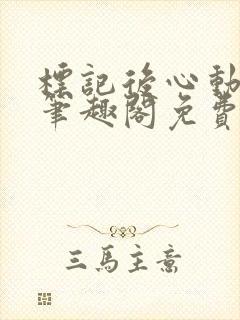 標記後心動
筆趣閣免費
三馬主意